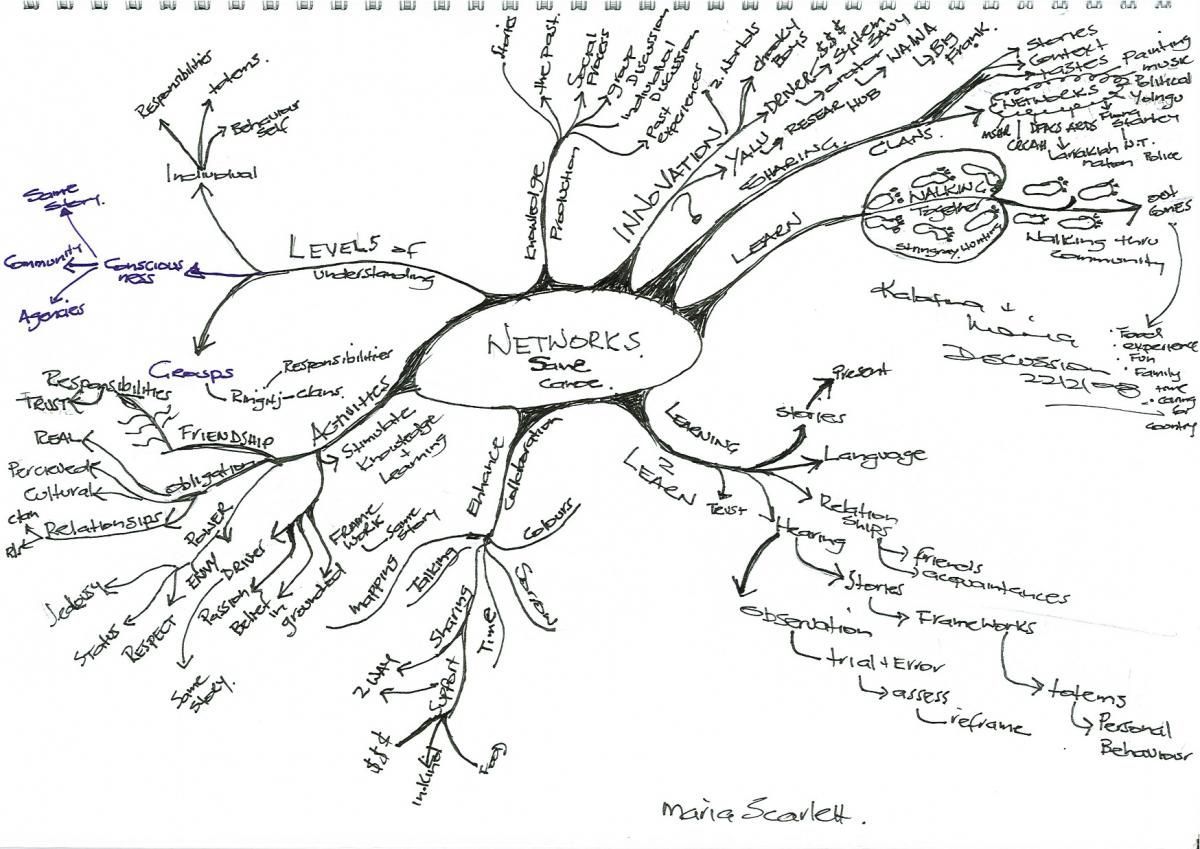 NETWORKS
Same
canoe.
LEVELS of
understanding
Individual
Responsibilities
totems.
Behaviour
Self
Conscious
ness
Same
Story.
Community
Agencies
Groups
Responsibilities
clans.
Knowledge
Production
Stories
the Past.
Social
Process
group
Discussion
Individual
Discussion
Past
experiences
INNOVATION
2 Worlds
cheeky
Boys
YALU
DRIVER
$$$
System
SAVY
HUB
Big
Frank.
SHARING.
CLANS.
Stories
Context
tastes
Painting
music
Political
Yolngu
NETWORKS
ARDS
Larrakiah
nation
N.T.
Police
LEARN
WALKING
Together
Stingray Hunting
out
comes
Walking thru
Community
• Food
• experience
• Fun
• Family
time
• caring
for
country
Maria
Discussion
ACTIVITIES
Stimulate
Knowledge
+
Learning
FRIENDSHIP
Responsibilities
TRUST
obligation
REAL
Percieved
Cultural
Relationsips
clan
POWER
Jealousy
Status
ENVY
RESPECT
DRIVER
Same
Story.
Passion
Belief
in
grounded
FRAME
WORK
Same
Story
Enhance
Collaboration
Colours
mapping
Talking
Sharing
2 WAY
Support
$$$
Inkind
Food
Time
LEARNING
2
LEARN
Trust
Stories
Present
Language
Relation
ships
friends
acquaintances
Hearing
Stories
Frameworks
totems
Personal
Behaviour
observation
trial + Error
assess
reframe
Maria Scarlett.